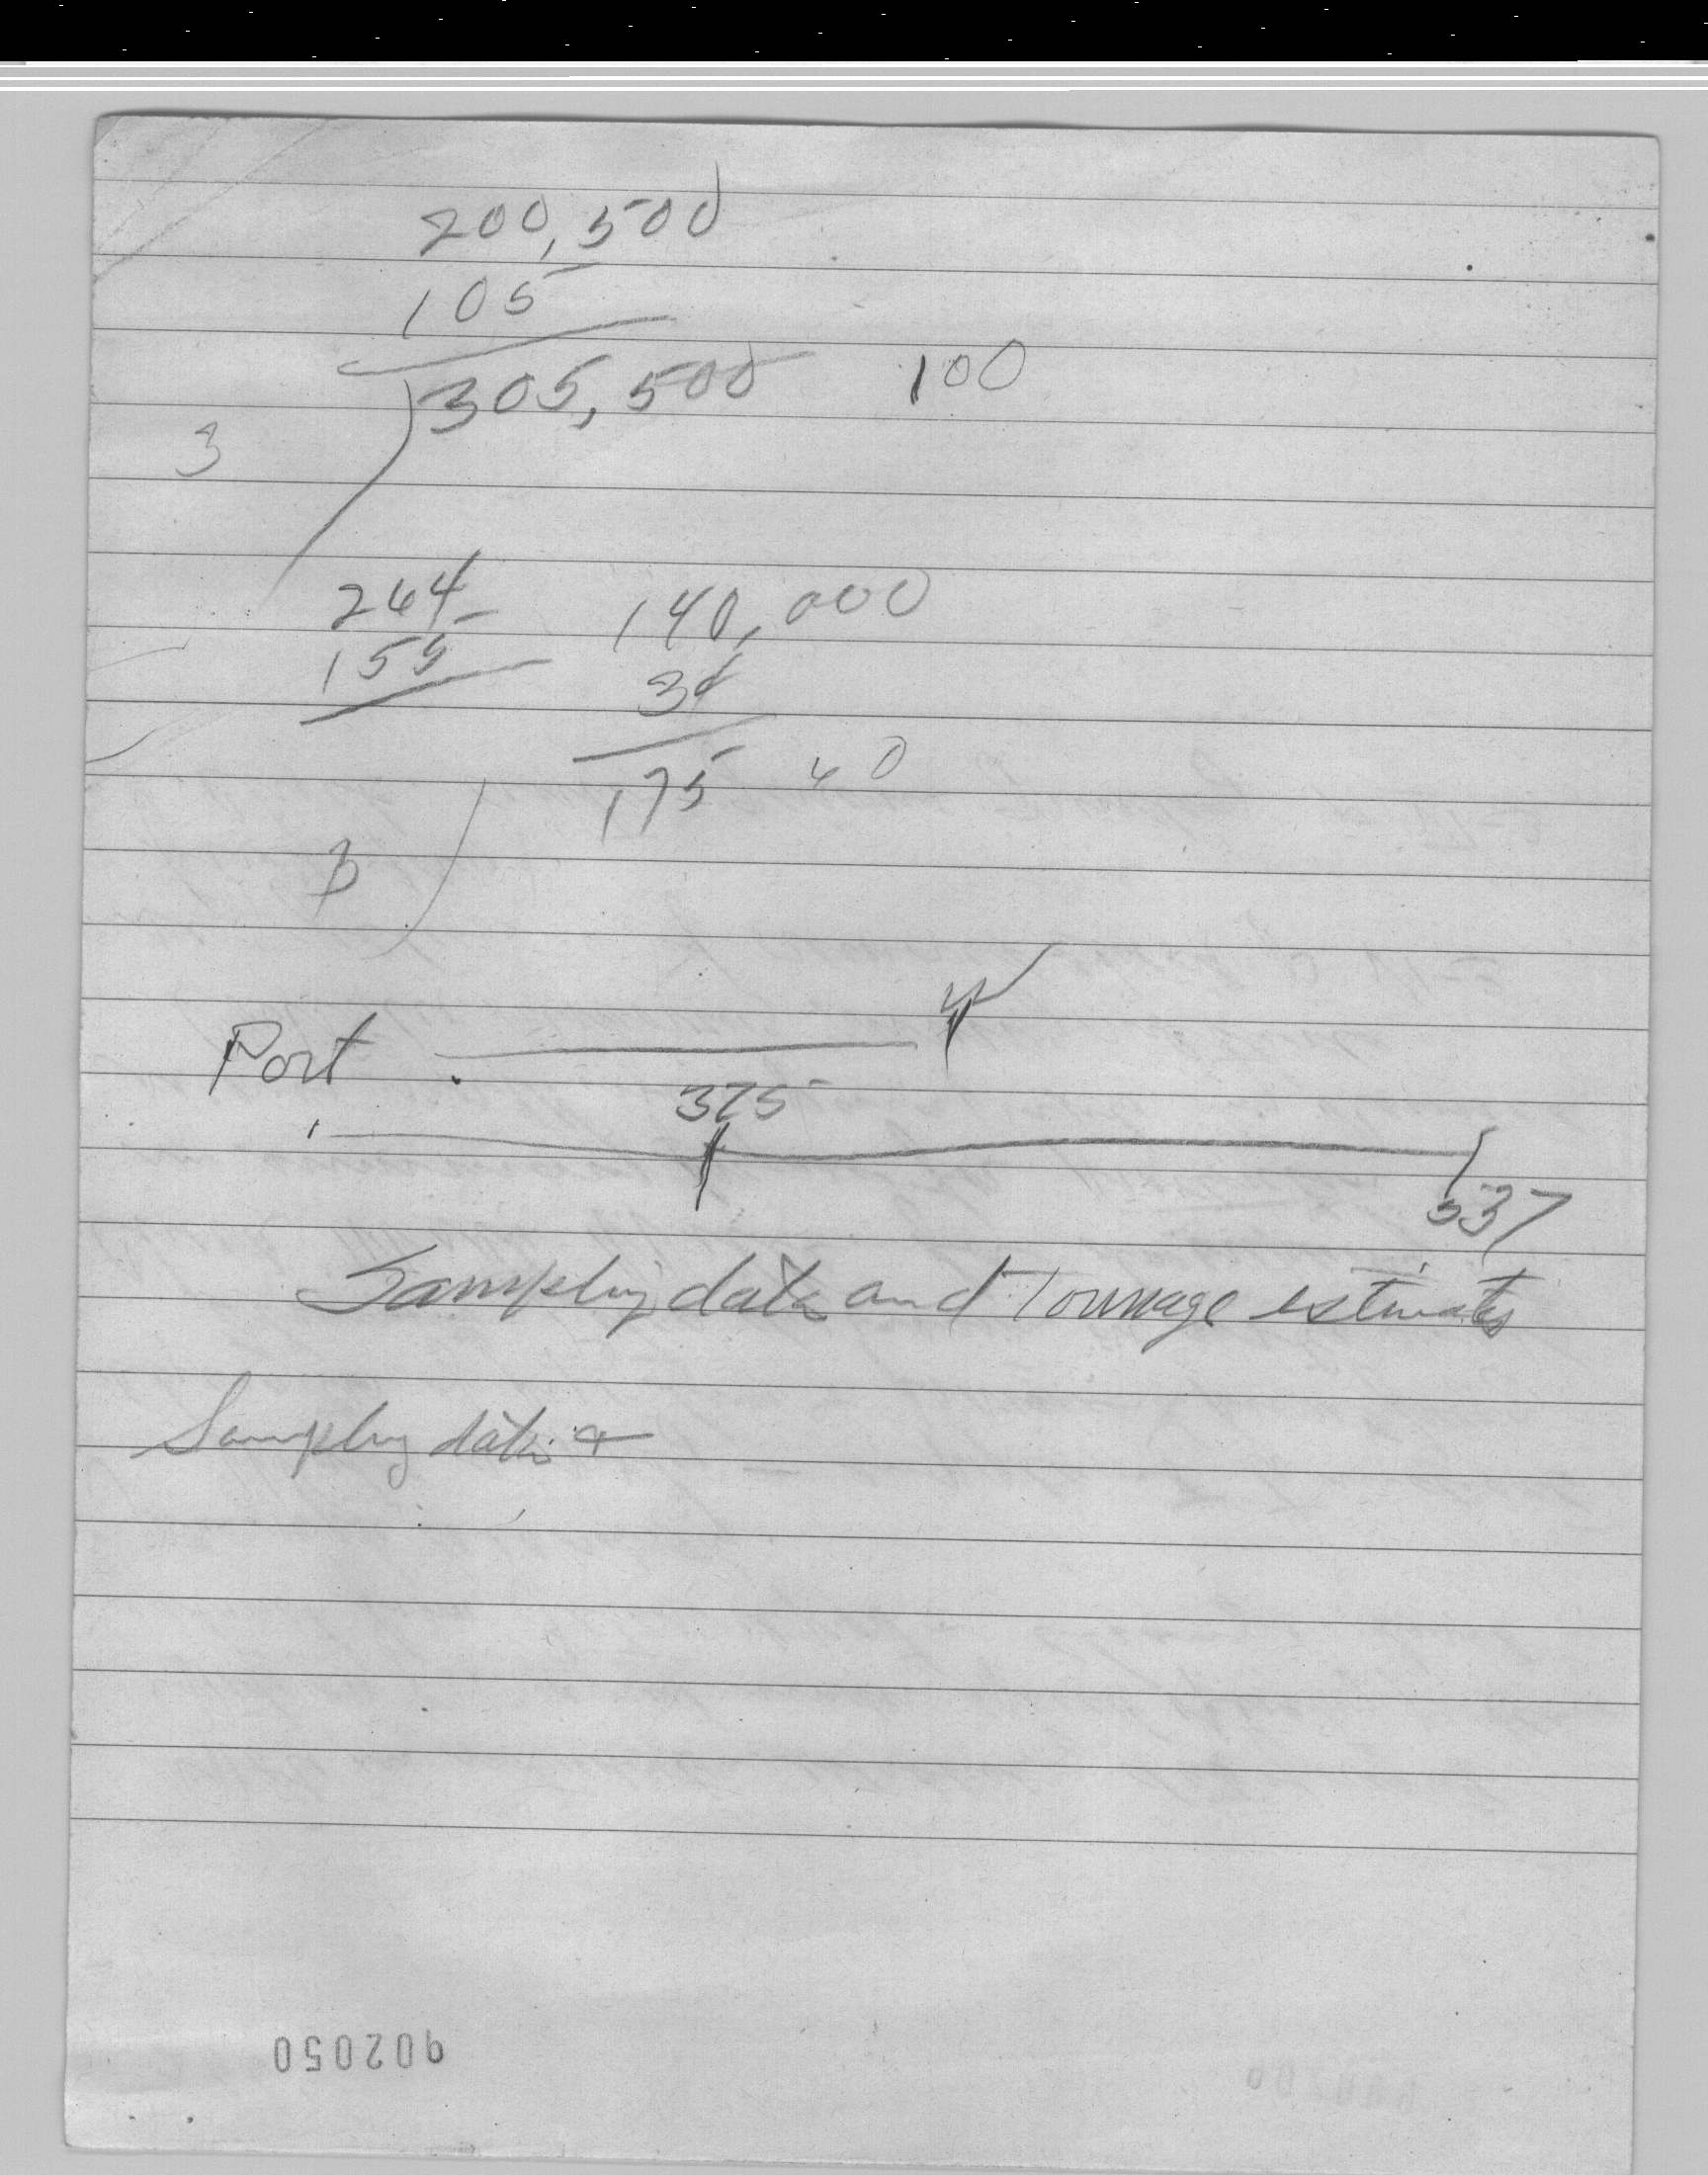 200,500
105
305,500 100
3
264 140,000
155
175 40
3
Port
375
537
Sampling data and Tonnage estimates
Sampling data &